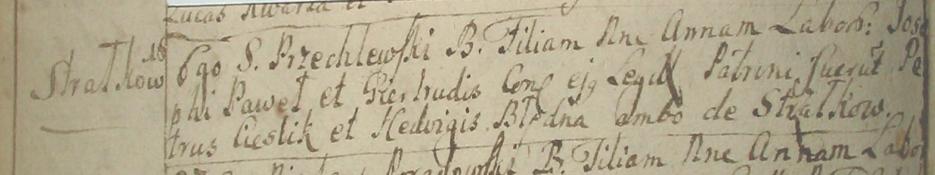 Lucas Kwarta et
18
Stratków
Ego S. Przechlewski B. Filiam Nne Annam Labor: Jose
phi Paweł et Giertrudis Conj ejg Legit Patrini fuerūt Pe
trus Cieslik et Hedvigis Błędna ambo de Stratkow.
B. Filiam Nne Annam Labor